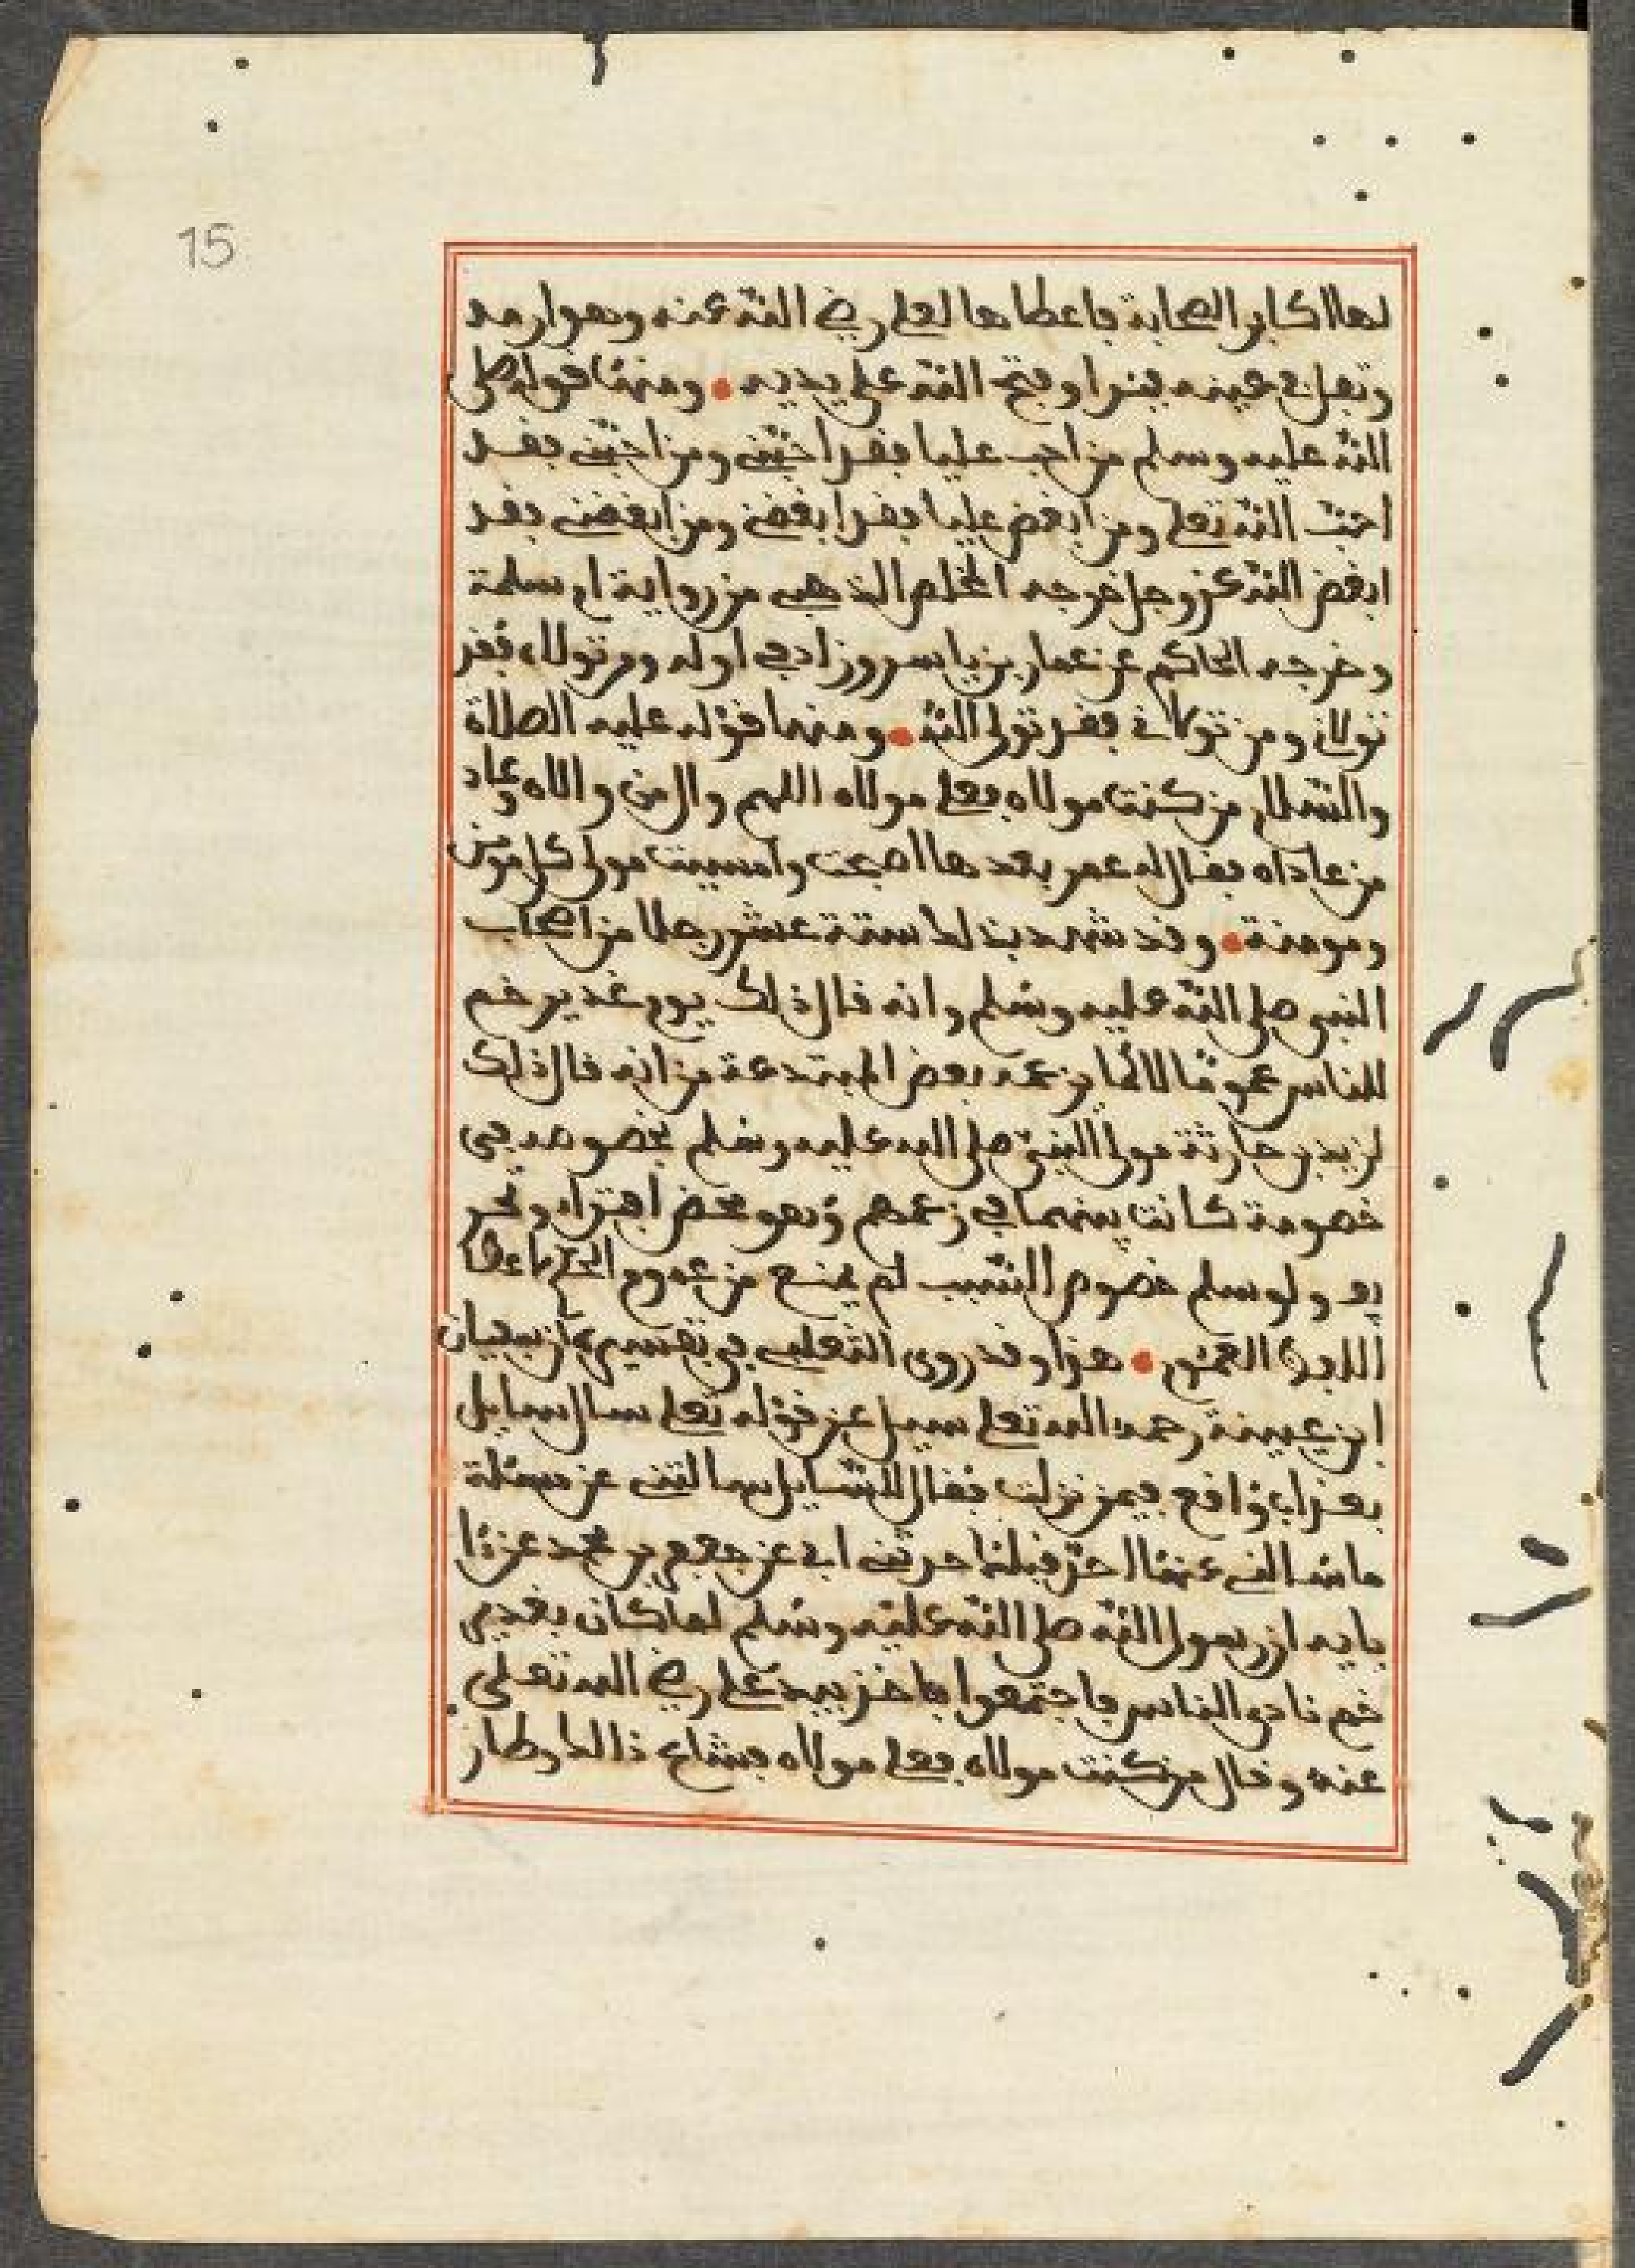 15
لها اكابر الصحابة فاعطاها لعلي رضي الله عنه وهو ارمد
وتفل في عينه فبرا وفتح الله على يديه • ومنها قوله صلى
الله عليه وسلم من احب عليا فقد احبني ومن احبني فقد
احب الله تعلى ومن ابغض عليا فقد ابغضني ومن ابغضني فقد
ابغض الله عز وجل خرجه المخلص الذهبي من رواية ام سلمة
وخرجه الحاكم عن عمار بن ياسر وزاد في اوله ومن تولاه فقد
تولاني ومن تولاني فقد تولى الله • ومنها قوله عليه الصلاة
والسلام من كنت مولاه فعلي مولاه اللهم وال من والاه وعاد
من عاداه فقال له عمر بعدها اصبحت وامسيت مولى كل مومن
ومومنة • وقد شهد بذلك ستة عشر رجلا من اصحاب
النبي صلى الله عليه وسلم وانه قال ذلك يوم غدير خم
للناس عموما لا كما يزعمه بعض المبتدعة من انه قال ذلك
لزيد بن حارثة مولى النبي صلى الله عليه وسلم بخصوصه في
خصومة كانت بينهما في زعمهم وهو محض افتراء
ولو سلم خصوص السبب لم يمنع من عموم الحكم
اللفظ العموم • هذا وقد روى الثعلبي في تفسيره ان سفيان
ابن عيينة رحمه الله تعلى سيل عن قوله تعلى سال سايل
بعذاب واقع فيمن نزلت فقال للسايل سالتني عن مسئلة
ما سالني عنها احد قبلك حدثني ابي عن جعفر بن محمد عن
ان رسول الله صلى الله عليه وسلم لما كان بغدير
خم نادى الناس فاجتمعوا فاخذ بيد علي رضي الله تعلى
عنه وقال من كنت مولاه فعلي مولاه فشاع ذالك وطار